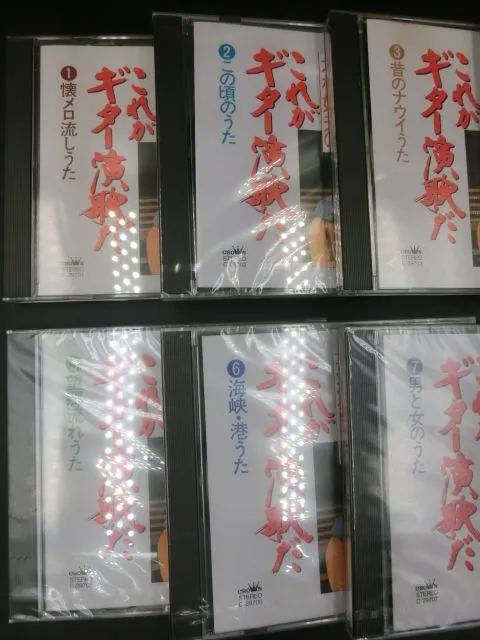 1 懐メロ流しうた
これが
ギター演歌だ
CROWN
STEREO
C-29701
2 この頃のうた
これが
ギター演歌だ
CROWN
STEREO
C-29702
3 昔のナウイうた
これが
ギター演歌だ
CROWN
STEREO
C-29703
これが
ギター演歌だ
CROWN
STEREO
6 海峡・港うた
これが
ギター演歌だ
CROWN
STEREO
C-29706
7 男と女のうた
これが
ギター演歌だ
CROWN
STEREO
C-29707